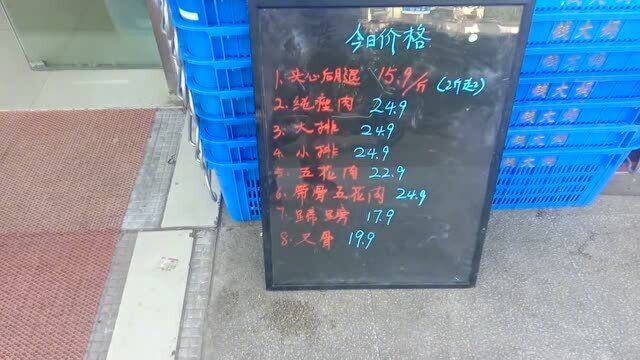 今日价格
1. 夹心后腿 15.9/斤 (2斤起)
2. 纯瘦肉 24.9
3. 大排 24.9
4. 小排 24.9
5. 五花肉 22.9
6. 带骨五花肉 24.9
7. 蹄髈 17.9
8. 叉骨 19.9
钱大妈
钱大妈
钱大妈
钱大妈
钱大妈
钱大妈